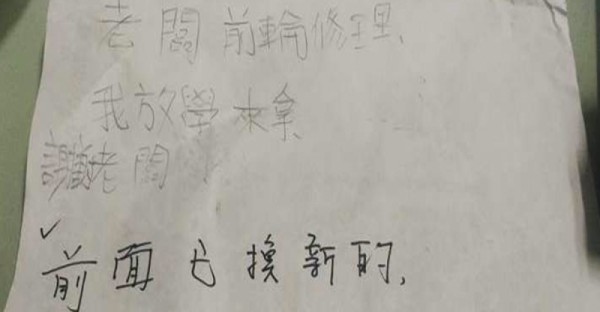 老闆前輪修理、
我放學來拿
謝謝老闆
✓
前面已換新的,